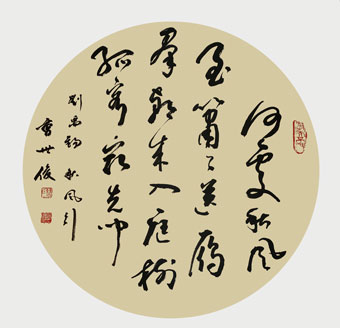 何處秋風
至蕭々送雁
群朝来入庭樹
孤客最先聞
刘禹錫秋風引
世俊